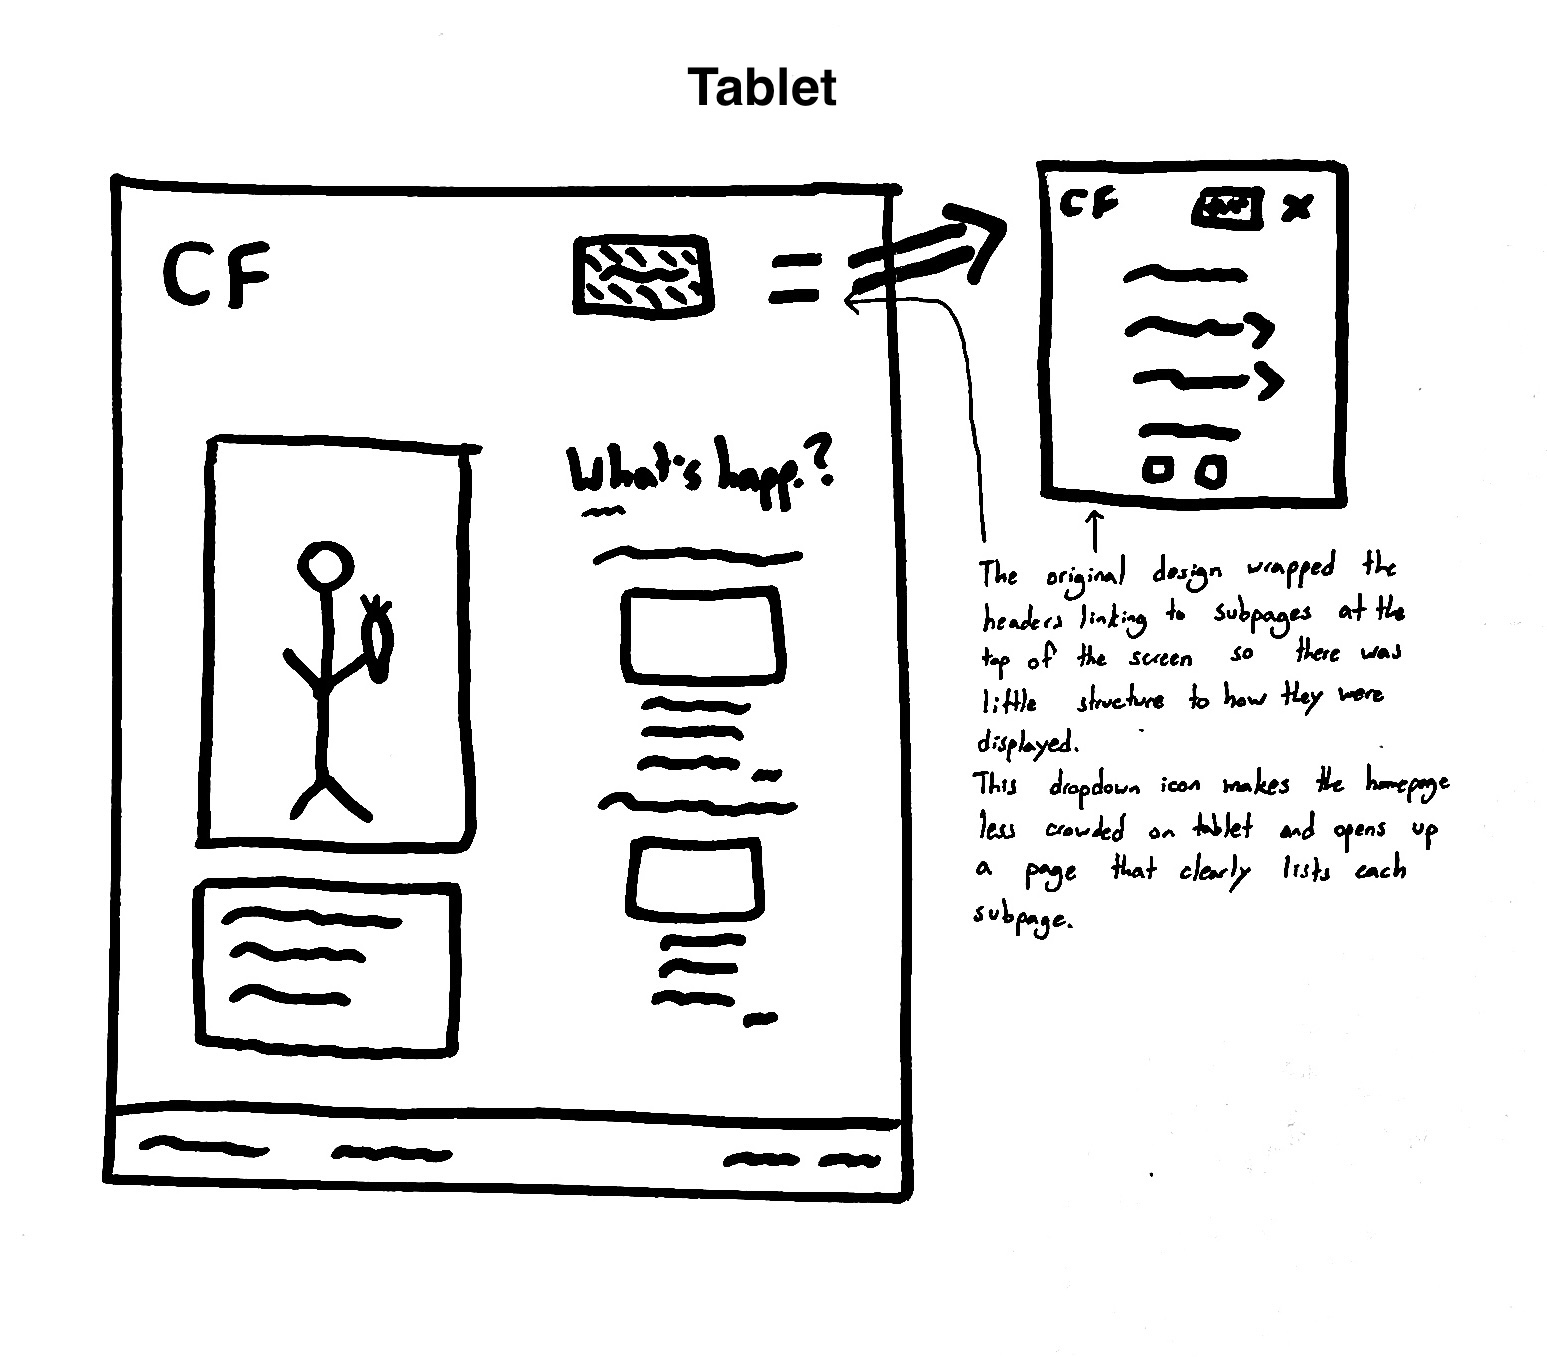 Tablet
CF
CF
X
What's happ.?
The original design wrapped the
headers linking to subpages at the
top of the screen so there was
little structure to how they were
displayed.
This dropdown icon makes the homepage
less crowded on tablet and opens up
a page that clearly lists each
subpage.